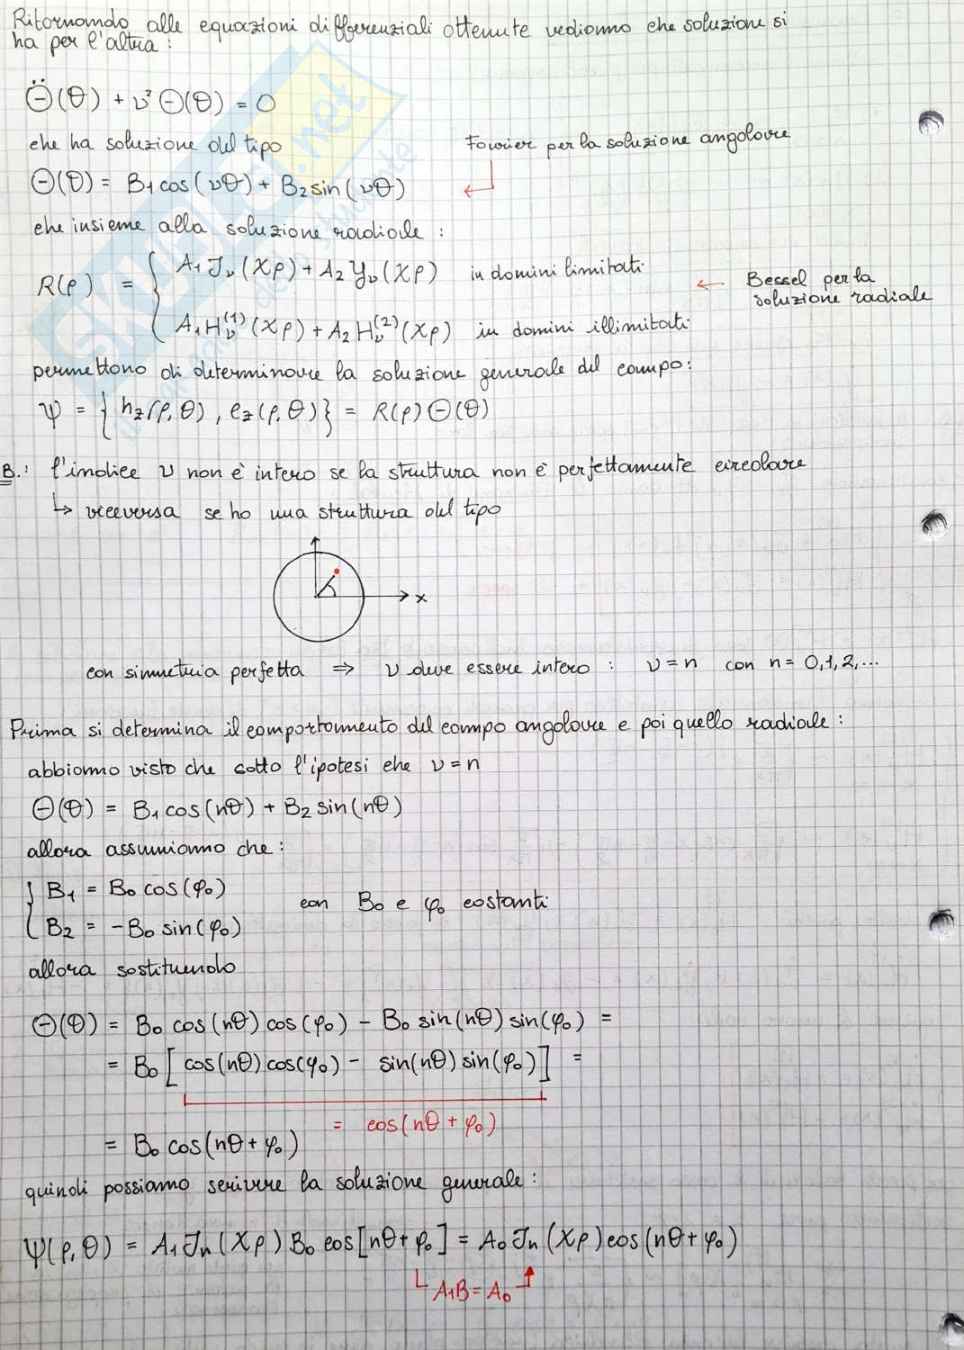 Ritornando alle equazioni differenziali ottenute vediamo che soluzione si
ha per l'altra:
Θ̈(θ) + ν² Θ(θ) = 0
che ha soluzione del tipo
Fourier per la soluzione angolare
Θ(θ) = B₁ cos(νθ) + B₂ sin(νθ) ←
che insieme alla soluzione radiale:
R(ρ) = { A₁ Jν(χρ) + A₂ Yν(χρ) in domini limitati
← Bessel per la
soluzione radiale
A₁ Hν⁽¹⁾(χρ) + A₂ Hν⁽²⁾(χρ) in domini illimitati
permettono di determinare la soluzione generale del campo:
Ψ = { hz(ρ,θ), ez(ρ,θ)} = R(ρ) Θ(θ)
B.: l'indice ν non è intero se la struttura non è perfettamente circolare
↳ viceversa se ho una struttura del tipo
x
con simmetria perfetta ⇒ ν deve essere intero: ν = n con n = 0,1,2,...
Prima si determina il comportamento del campo angolare e poi quello radiale:
abbiamo visto che sotto l'ipotesi che ν = n
Θ(θ) = B₁ cos(nθ) + B₂ sin(nθ)
allora assumiamo che:
{ B₁ = B₀ cos(φ₀)
con B₀ e φ₀ costanti
B₂ = -B₀ sin(φ₀)
allora sostituendo
Θ(θ) = B₀ cos(nθ) cos(φ₀) - B₀ sin(nθ) sin(φ₀) =
= B₀ [cos(nθ) cos(φ₀) - sin(nθ) sin(φ₀)] =
= cos(nθ + φ₀)
= B₀ cos(nθ + φ₀)
quindi possiamo scrivere la soluzione generale:
Ψ(ρ,θ) = A₁ Jn(χρ) B₀ cos[nθ + φ₀] = A₀ Jn(χρ) cos(nθ + φ₀)
A₁B = A₀